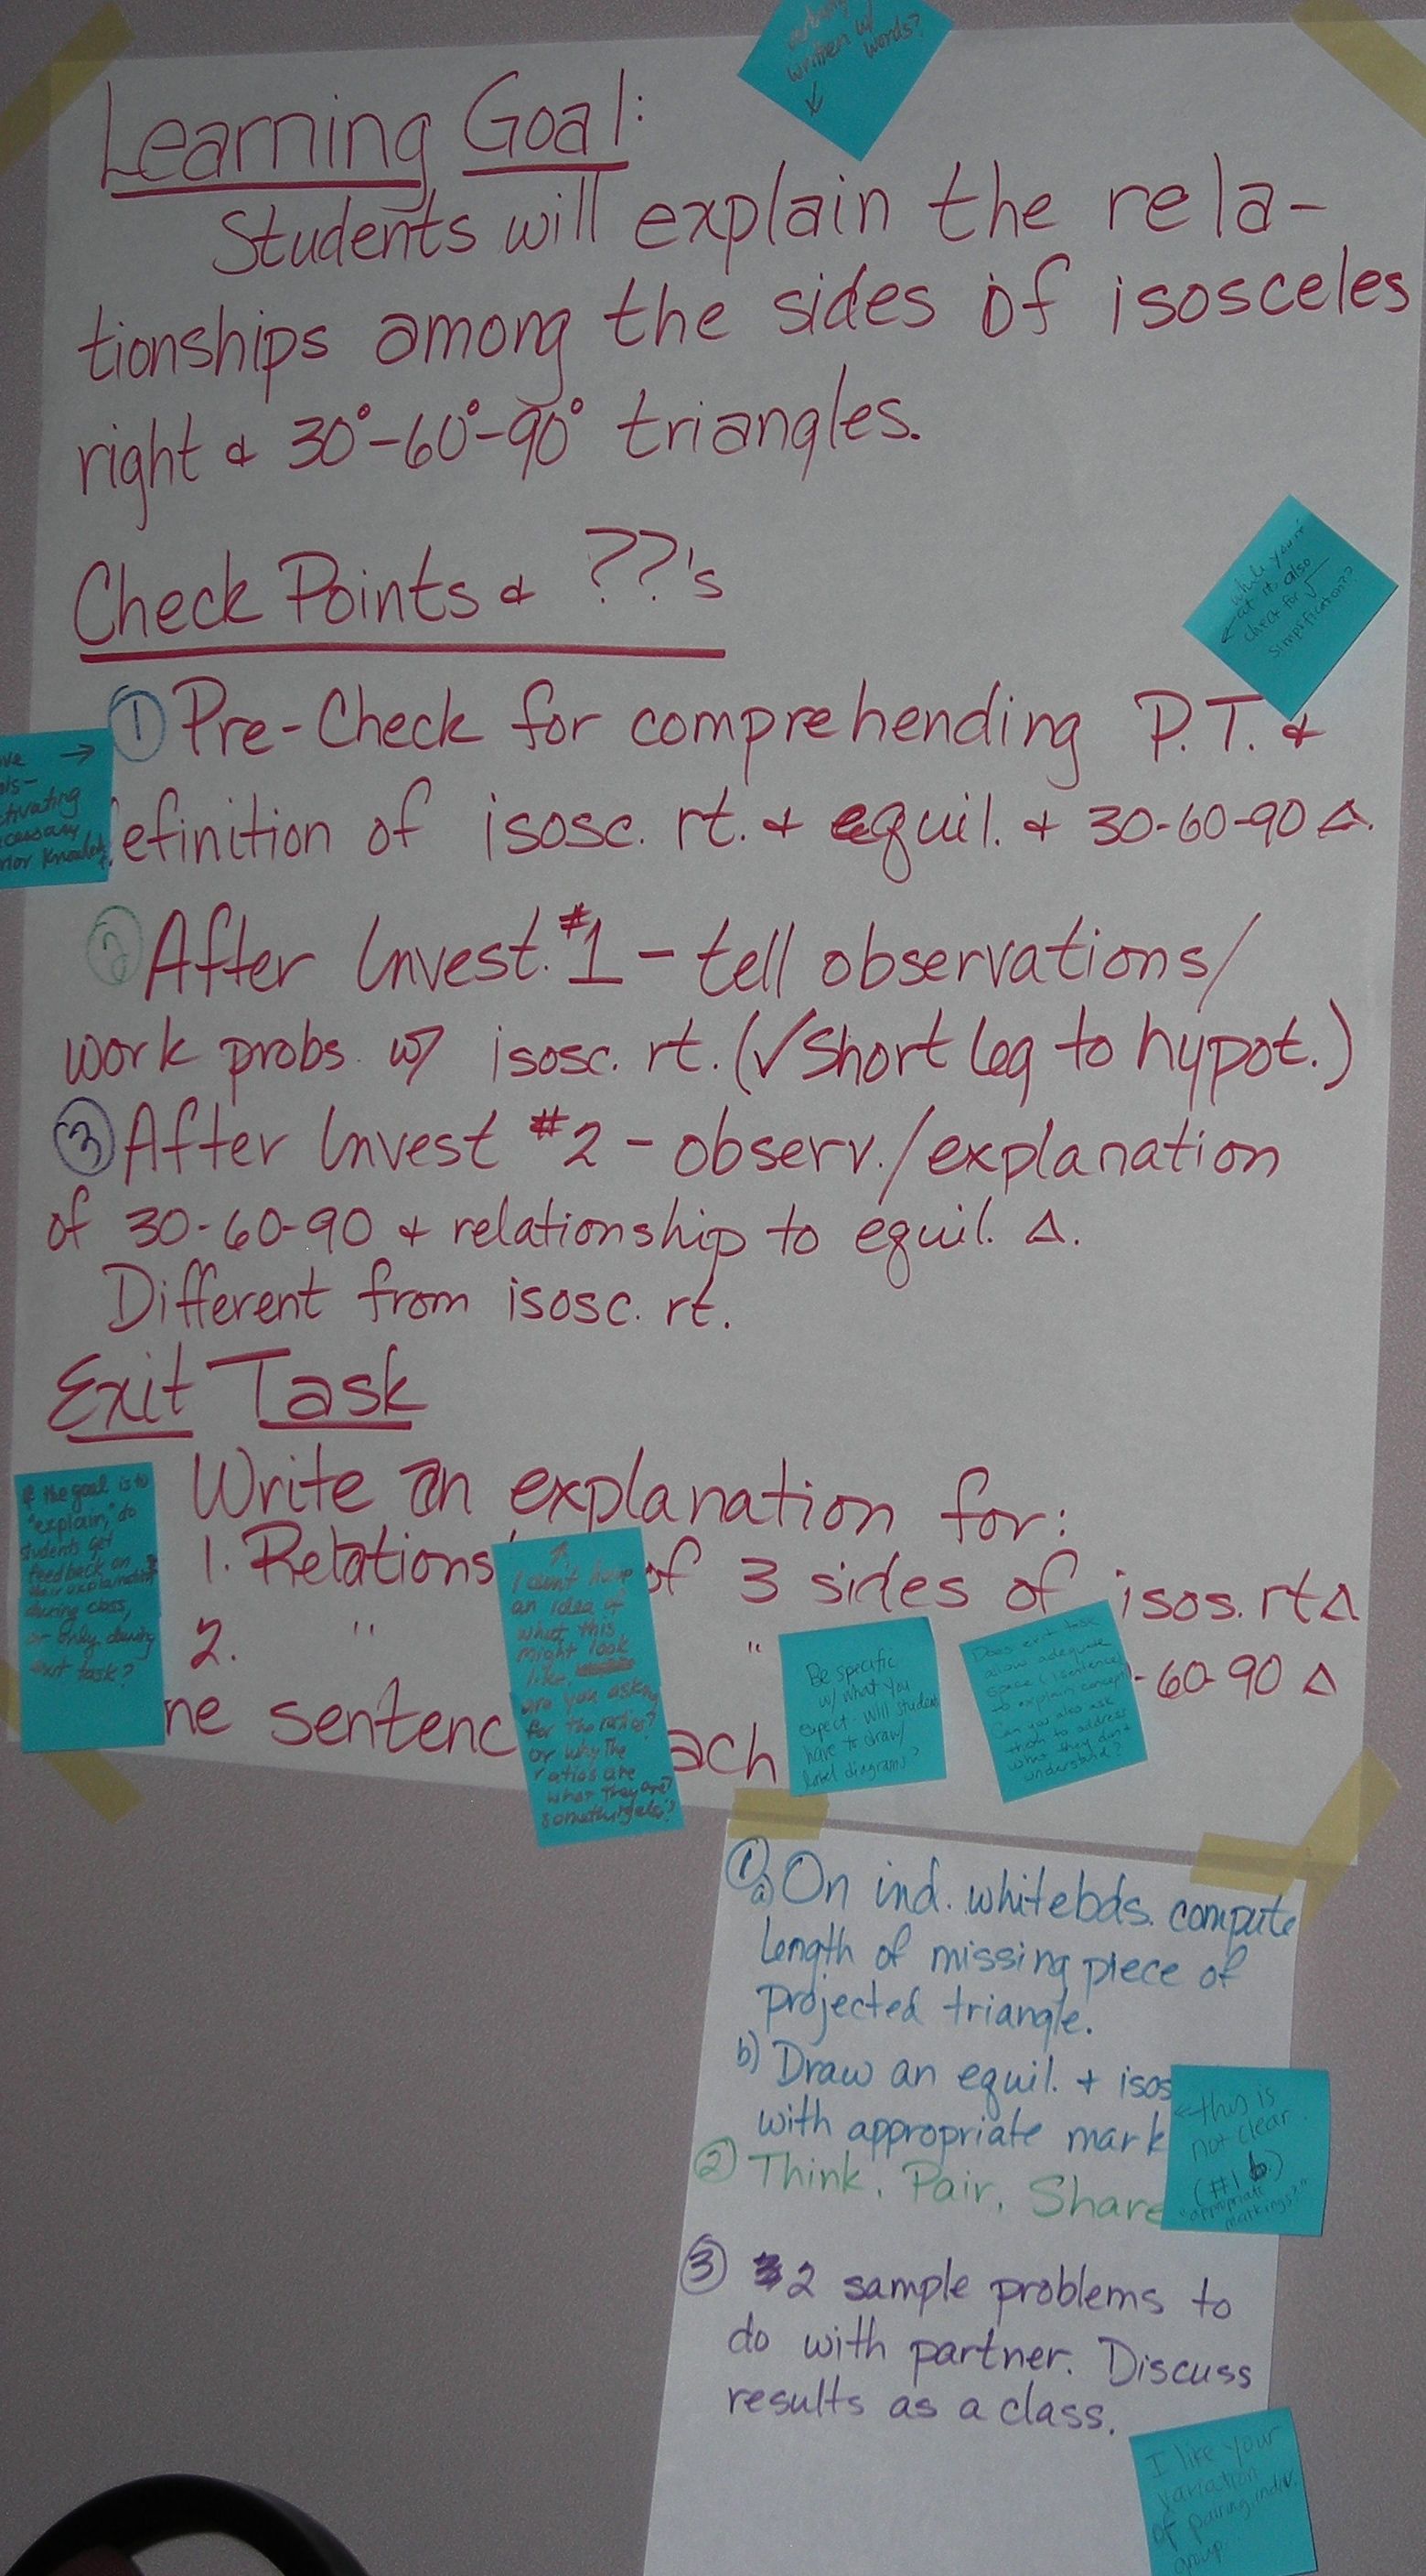 written w/
words?
↓
Learning Goal:
Students will explain the rela-
tionships among the sides of isosceles
right & 30°-60°-90° triangles.
Check Points & ??'s
while you're
← at it, also
check for √
simplification??
① Pre-Check for comprehending P.T. &
efinition of isosc. rt. & equil. & 30-60-90 △.
→
② After Invest. #1 - tell observations/
work probs. w/ isosc. rt. (√ Short leg to hypot.)
③ After Invest #2 - observ./explanation
of 30-60-90 & relationship to equil. △.
Different from isosc. rt.
Exit Task
Write an explanation for:
1. Relations of 3 sides of isos. rt △
2. " " -60-90 △
ne sentenc ach
If the goal is to
"explain," do
students get
feedback on
their explanations
during class,
or only during
exit task?
↑
I don't have
an idea of
what this
might look
like.
are you asking
for the ratios?
or why the
ratios are
what they are?
something else?
Be specific
w/ what you
expect - will students
have to draw/
label diagrams?
Does exit task
allow adequate
space (1 sentence)
to explain concept?
Can you also ask
them to address
what they don't
understand?
① a) On ind. whitebds. compute
length of missing piece of
projected triangle.
b) Draw an equil. + isos
with appropriate mark
← this is
not clear.
(#1 b.)
"appropriate
markings?"
② Think, Pair, Share
③ 2 sample problems to
do with partner. Discuss
results as a class.
I like your
variation
of pairing, indiv.
group.